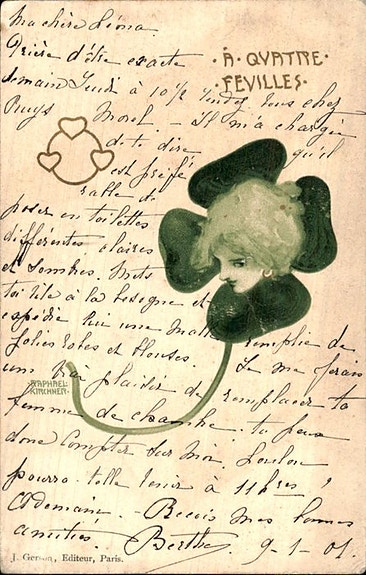 Ma chère Léona.
Prière d'être exacte
demain Jeudi à 10½ rendez vous chez
Puys Morel. - Il m'a chargée
de te dire qu'il
est préfé
rable de
poser en toilettes
différentes claires
et sombres. Mets
toi vite à la besogne et
expédie lui une malle remplie de
jolies robes et blouses. Je me ferais
un vrai plaisir de remplacer ta
femme de chambre. tu peux
donc compter sur moi. Loulou
pourra-telle venir à 11 hres ?
A demain - Reçois mes bonnes
amitiés. Berthe 9-1-01.
·À·QVATRE·
FEVILLES·
RAPHAEL
KIRCHNER
J. Gerson, Editeur, Paris.